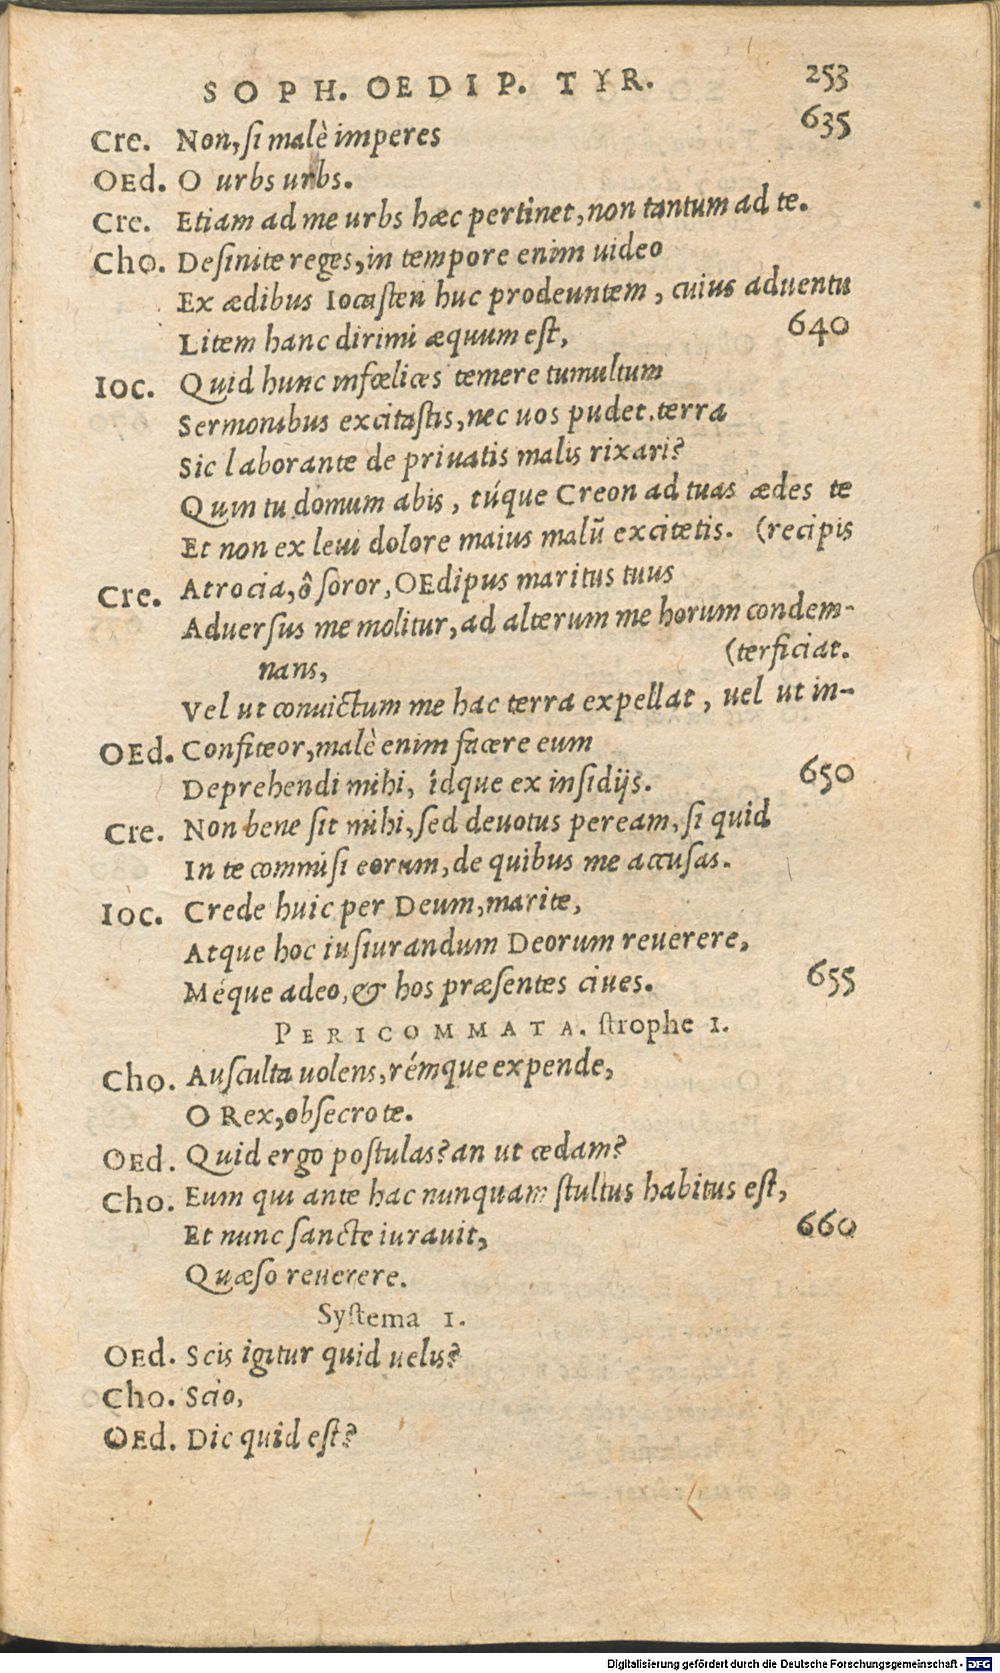 SOPH. OEDIP. TYR. 253
635
Cre. Non, ſi malè imperes
OEd. O urbs urbs.
Cre. Etiam ad me urbs hæc pertinet, non tantum ad te.
Cho. Deſinite reges, in tempore enim uideo
Ex ædibus Iocaſten huc prodeuntem, cuius aduentu
Litem hanc dirimi æquum eſt, 640
Ioc. Quid hunc infœlices temere tumultum
Sermonibus excitaſtis, nec uos pudet. terra
Sic laborante de priuatis malis rixari?
Quin tu domum abis, túque Creon ad tuas ædes te
Et non ex leui dolore maius malũ excitetis. (recipis
Cre. Atrocia, ô ſoror, OEdipus maritus tuus
Aduerſus me molitur, ad alterum me horum condem-
nans, (terficiat.
Vel ut conuictum me hac terra expellat, uel ut in-
OEd. Confiteor, malè enim facere eum
Deprehendi mihi, idque ex inſidijs. 650
Cre. Non bene ſit mihi, ſed deuotus peream, ſi quid
In te commiſi eorum, de quibus me accuſas.
Ioc. Crede huic per Deum, marite,
Atque hoc iuſiurandum Deorum reuerere,
Méque adeo, & hos præſentes ciues. 655
PERICOMMATA. ſtrophe 1.
Cho. Auſculta uolens, rémque expende,
O Rex, obſecro te.
OEd. Quid ergo poſtulas? an ut cedam?
Cho. Eum qui ante hac nunquam ſtultus habitus eſt,
Et nunc ſancte iurauit, 660
Quæſo reuerere.
Syſtema 1.
OEd. Scis igitur quid uelis?
Cho. Scio,
OEd. Dic quid eſt?
Digitalisierung gefördert durch die Deutsche Forschungsgemeinschaft - DFG